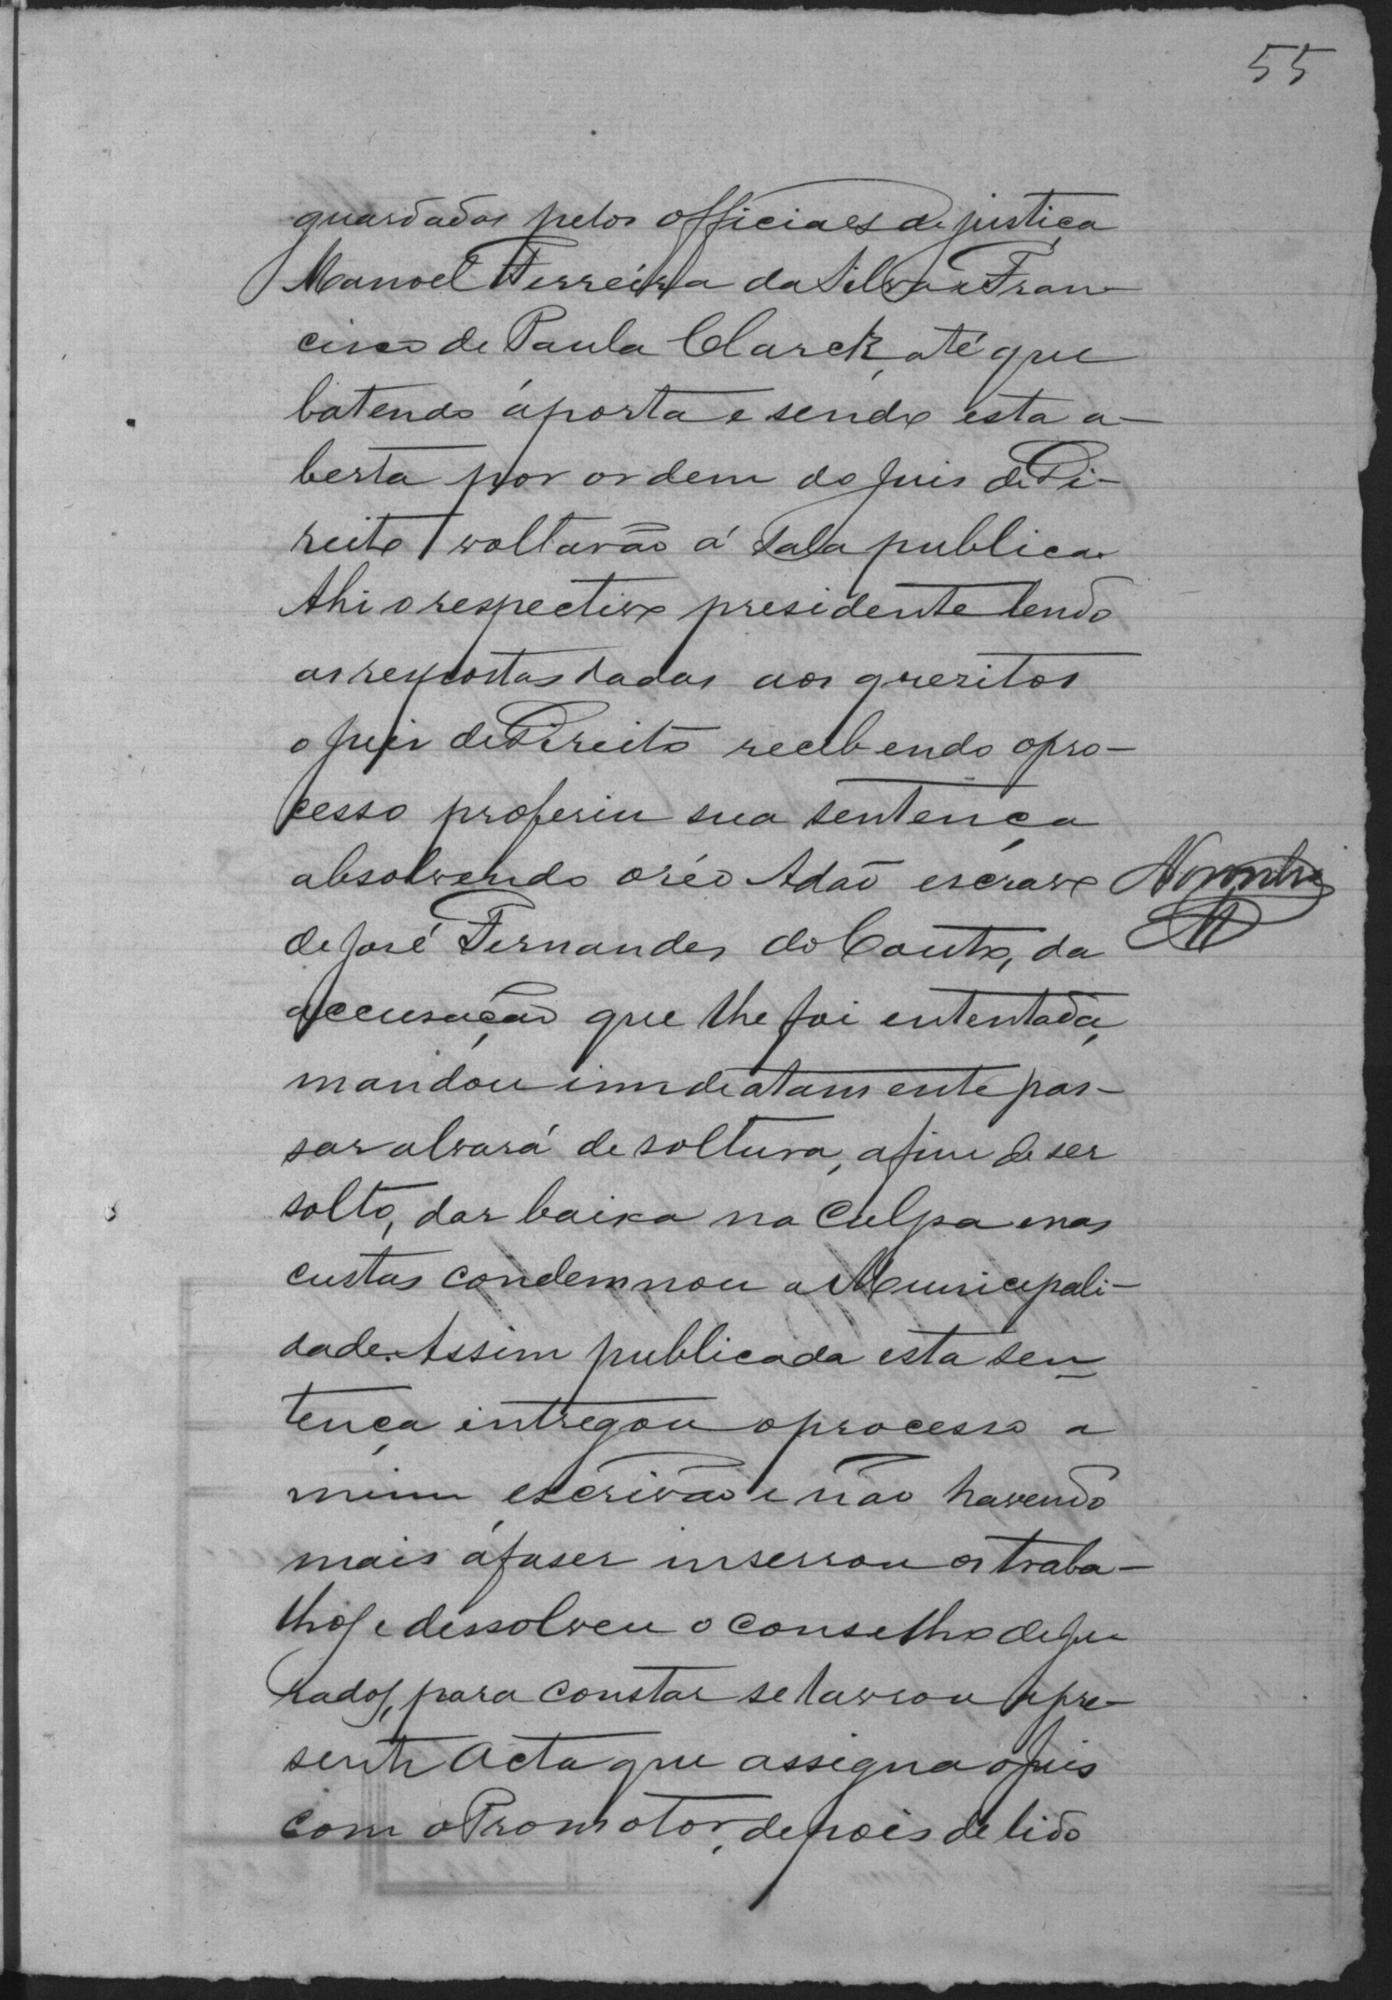 55
guardados pelos officiaes de justiça
Manoel Ferreira da Silva e Fran-
cisco de Paula Clarck, até que
batendo á porta e sendo esta a-
berta por ordem do Juis de Di-
reito voltarão á sala publica.
Ahi o respectivo presidente lendo
as respostas dadas aos quezitos
o Juis de Direito recebendo o pro-
cesso proferiu sua sentença
absolvendo o réo Adão escravo
de José Fernandes do Couto, da
accusação que lhe foi ententada,
mandou immdiatamente pas-
sar alvará de soltura, afim de ser
solto, dar baixa na culpa e nas
custas condemnou a Municipali-
dade. Assim publicada esta sen
tença intregou o processo a
mim escrivão e não havendo
mais á faser inserrou os traba-
lhos e dessolveu o conselho de ju
rados, para constar se lavrou a pre-
sente Acta que assigna o Juis
com o Promotor, depois de lido